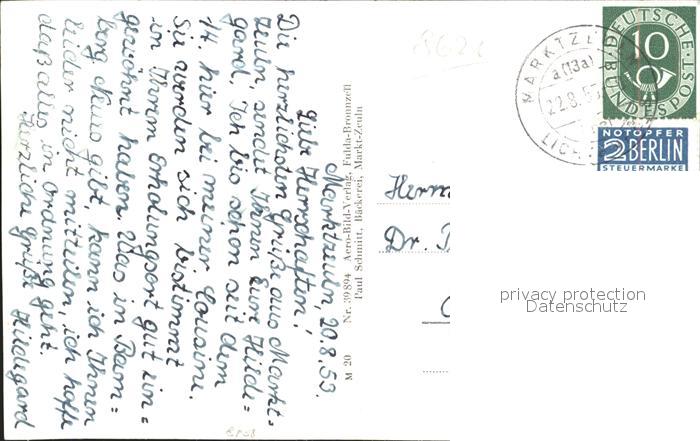 Marktzeuln, 20.8.53.
Liebe Herrschaften!
Die herzlichsten Grüße aus Markt=
zeuln, sendet Ihnen Eure Hilde=
gard. Ich bin schon seit dem
14. hier bei meiner Cousine.
Sie werden sich bestimmt
in Ihrem Erholungsort gut ein=
gewöhnt haben. Was in Bam=
berg Neues gibt kann ich Ihnen
leider nicht mitteilen, ich hoffe
daß alles in Ordnung geht.
Herzliche Grüße Hildegard
M 20 Nr. 39894 Aero-Bild-Verlag, Fulda-Bronnzell
Paul Schmitt, Bäckerei, Markt-Zeuln
MARKTZ
a (13a)
22.8.53
LICH
DEUTSCHE
BUNDESPOST
10
NOTOPFER
2 BERLIN
STEUERMARKE
Herrn
Dr.
privacy protection
Datenschutz